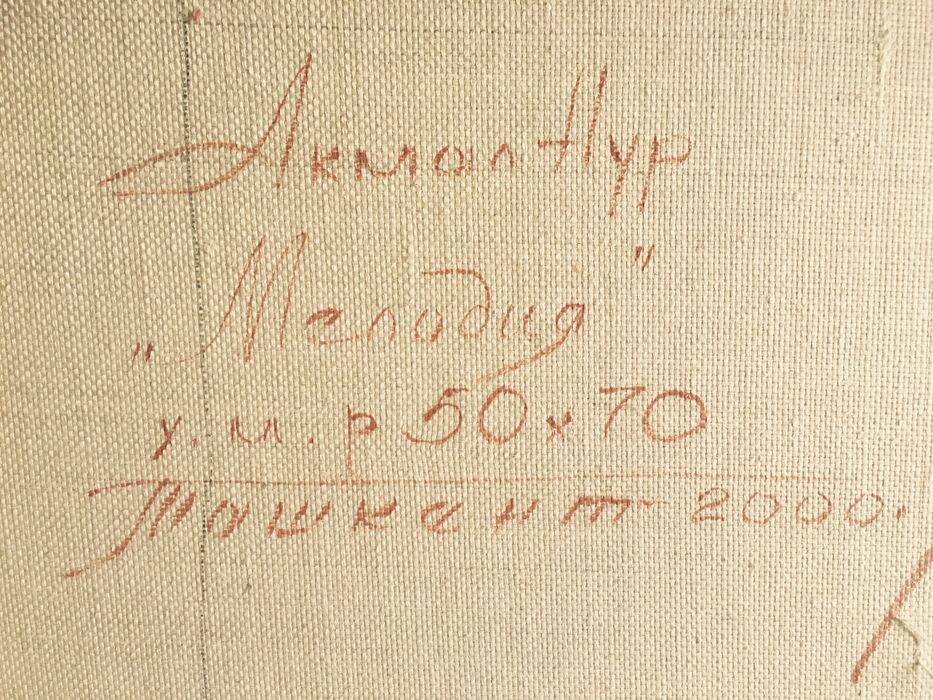 Акмал Нур
„Мелодия"
х.м. р 50х70
Ташкент 2000.